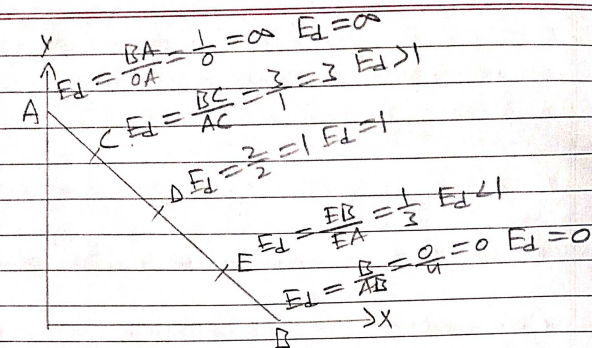 Y
A Ed = BA/OA = 1/0 = ∞ Ed = ∞
C Ed = BC/AC = 3/1 = 3 Ed > 1
D Ed = 2/2 = 1 Ed = 1
E Ed = EB/EA = 1/3 Ed < 1
Ed = B/AB = 0/4 = 0 Ed = 0
B X